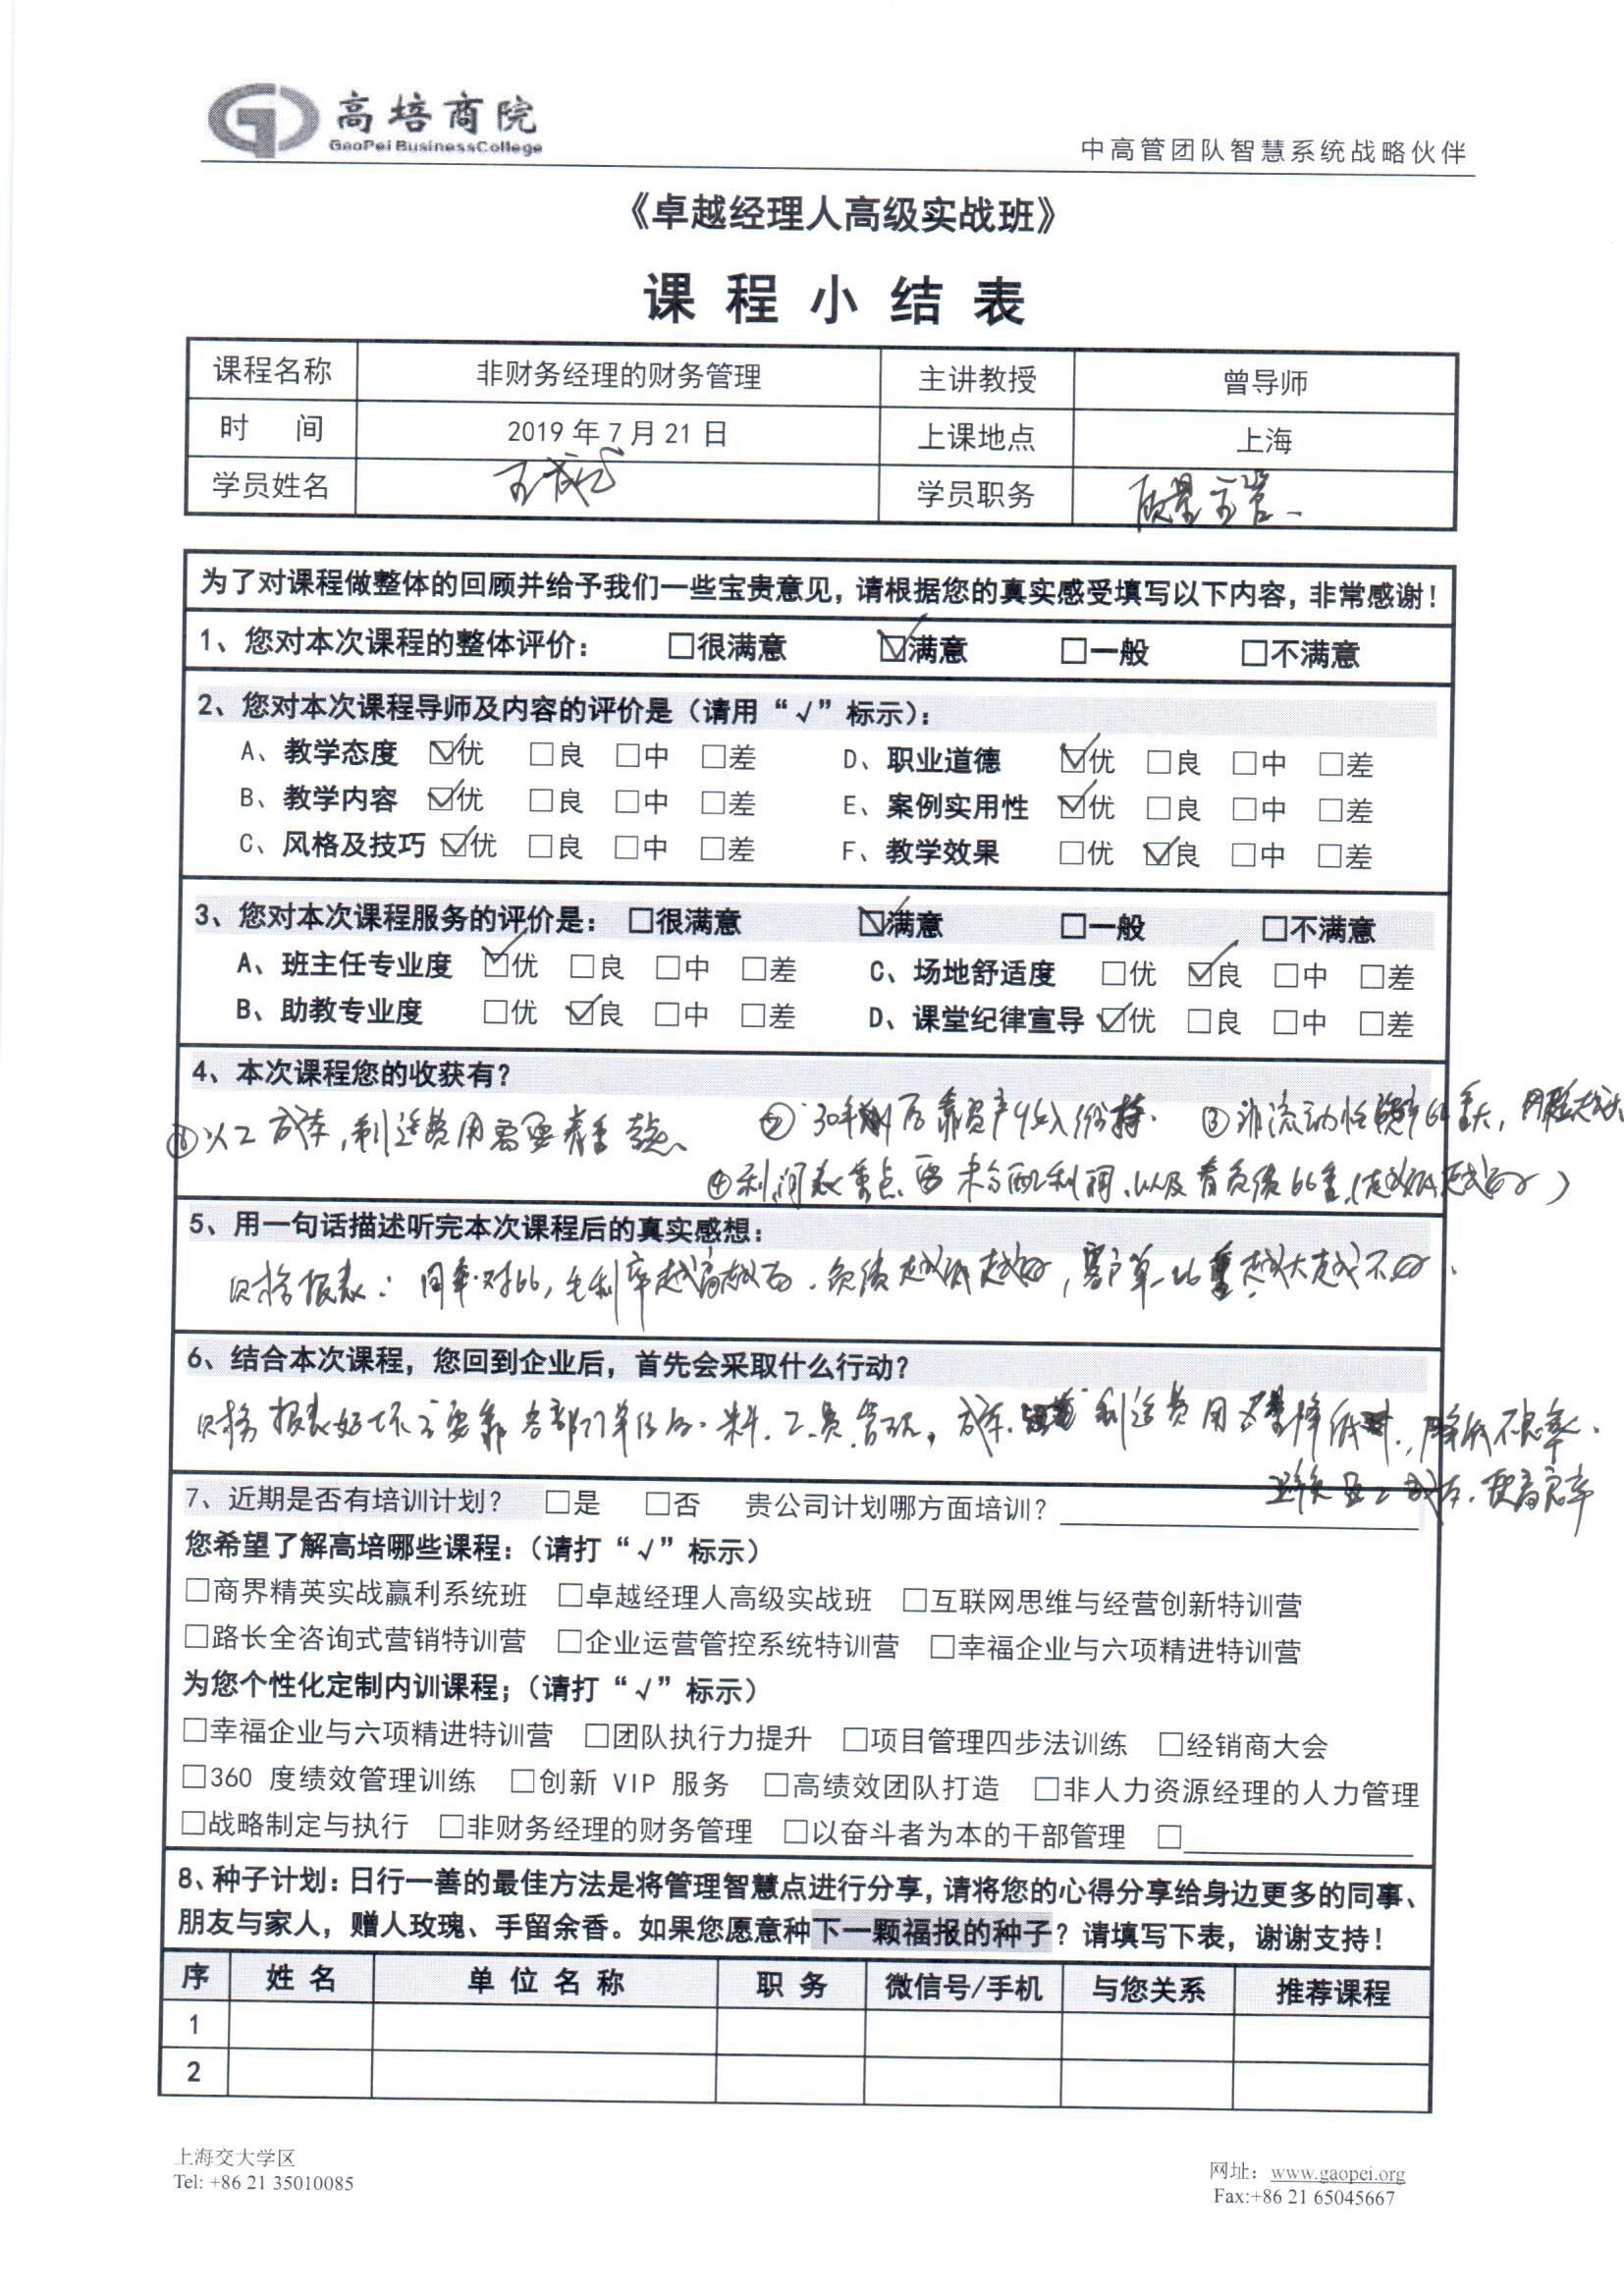 高培商院
GaoPei BusinessCollege
中高管团队智慧系统战略伙伴
《卓越经理人高级实战班》
课程小结表
课程名称 非财务经理的财务管理 主讲教授 曾导师
时 间 2019年7月21日 上课地点 上海
学员姓名 学员职务 质量主管
为了对课程做整体的回顾并给予我们一些宝贵意见，请根据您的真实感受填写以下内容，非常感谢！
1、您对本次课程的整体评价： □很满意 ☑满意 □一般 □不满意
2、您对本次课程导师及内容的评价是（请用“√”标示）：
A、教学态度 ☑优 □良 □中 □差 D、职业道德 ☑优 □良 □中 □差
B、教学内容 ☑优 □良 □中 □差 E、案例实用性 ☑优 □良 □中 □差
C、风格及技巧 ☑优 □良 □中 □差 F、教学效果 □优 ☑良 □中 □差
3、您对本次课程服务的评价是： □很满意 ☑满意 □一般 □不满意
A、班主任专业度 ☑优 □良 □中 □差 C、场地舒适度 □优 ☑良 □中 □差
B、助教专业度 □优 ☑良 □中 □差 D、课堂纪律宣导 ☑优 □良 □中 □差
4、本次课程您的收获有？
① 人工成本，制造费用需要 ② 30年 后靠资产收入 ③ 非流动性
④ 利润表重点 要 未分配利润、以及看负债比重（越低越好）
5、用一句话描述听完本次课程后的真实感想：
财务报表：同率对比，毛利率越高越 、负债越低越好，客户单一比重越大越不好．
6、结合本次课程，您回到企业后，首先会采取什么行动？
财务报表好坏主要靠各部门单位的．料、工、费 ，成本 制造费用 降低 ，降低不良率、
成本．提高
7、近期是否有培训计划？ □是 □否 贵公司计划哪方面培训？
您希望了解高培哪些课程：（请打“√”标示）
□商界精英实战赢利系统班 □卓越经理人高级实战班 □互联网思维与经营创新特训营
□路长全咨询式营销特训营 □企业运营管控系统特训营 □幸福企业与六项精进特训营
为您个性化定制内训课程；（请打“√”标示）
□幸福企业与六项精进特训营 □团队执行力提升 □项目管理四步法训练 □经销商大会
□360 度绩效管理训练 □创新 VIP 服务 □高绩效团队打造 □非人力资源经理的人力管理
□战略制定与执行 □非财务经理的财务管理 □以奋斗者为本的干部管理 □
8、种子计划：日行一善的最佳方法是将管理智慧点进行分享，请将您的心得分享给身边更多的同事、
朋友与家人，赠人玫瑰、手留余香。如果您愿意种下一颗福报的种子？请填写下表，谢谢支持！
序 姓名 单位名称 职务 微信号/手机 与您关系 推荐课程
1
2
上海交大学区
Tel: +86 21 35010085
网址：www.gaopei.org
Fax:+86 21 65045667